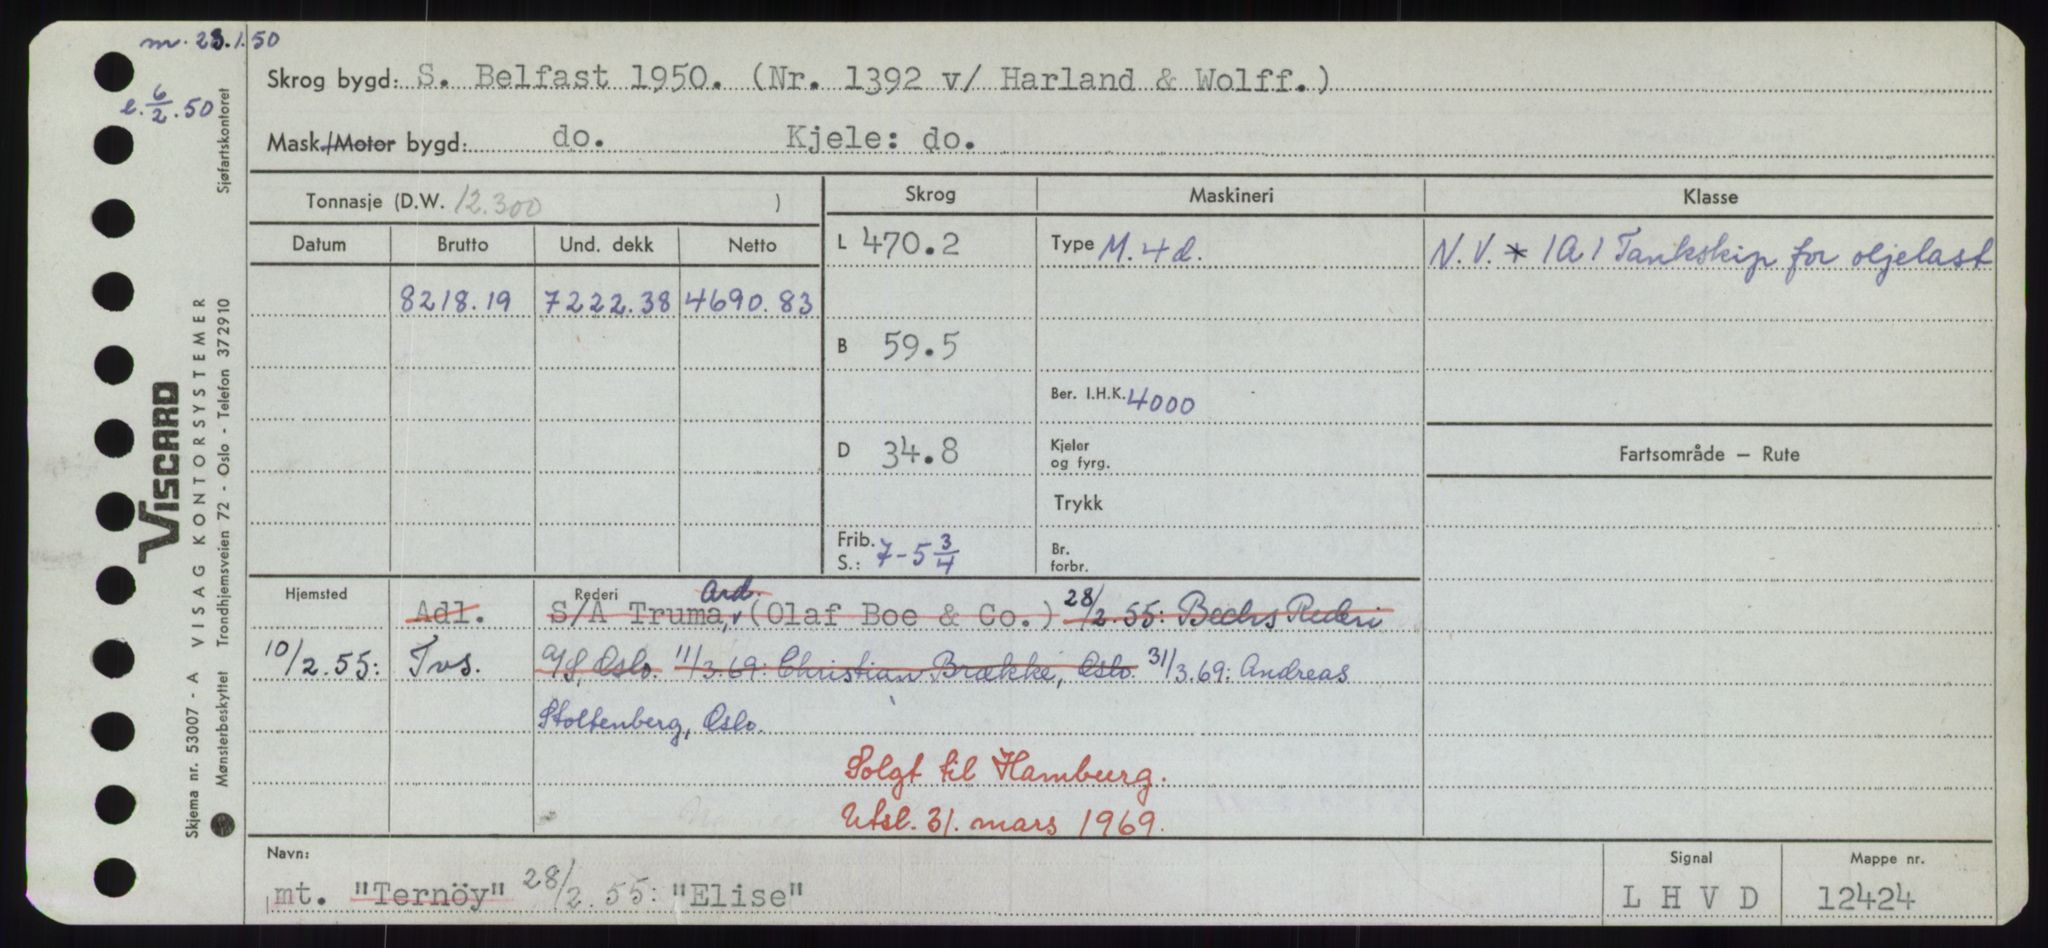 m. 23.1.50
e. 6/2.50
Skrog bygd: S. Belfast 1950. (Nr. 1392 v/ Harland & Wolff.)
Mask./Motor bygd: do. Kjele: do.
Tonnasje (D.W. 12.300 )
Skrog Maskineri Klasse
Datum Brutto Und. dekk Netto
L 470.2 Type M. 4 d. N.V. * 1A1 Tankskip for oljelast
8218.19 7222.38 4690.83
B 59.5
Ber. I.H.K. 4000
D 34.8 Kjeler
og fyrg.
Fartsområde – Rute
Trykk
Frib.
S.: 7-5 3/4
Br.
forbr.
Hjemsted Rederi
Ard.
Adl. S/A Truma, (Olaf Boe & Co.) 28/2.55: Bechs Rederi
10/2.55: Tvs. A/S, Oslo. 11/3.69: Christian Brække, Oslo. 31/3.69: Andreas
Stoltenberg, Oslo.
Solgt til Hamburg.
Utsl. 31. mars 1969.
Navn: Signal Mappe nr.
mt. "Ternöy" 28/2.55: "Elise" L H V D 12424
VISCARD
Skjema nr. 53007 - A VISAG KONTORSYSTEMER
Mønsterbeskyttet Trondhjemsveien 72 - Oslo - Telefon 372910
Sjøfartskontoret